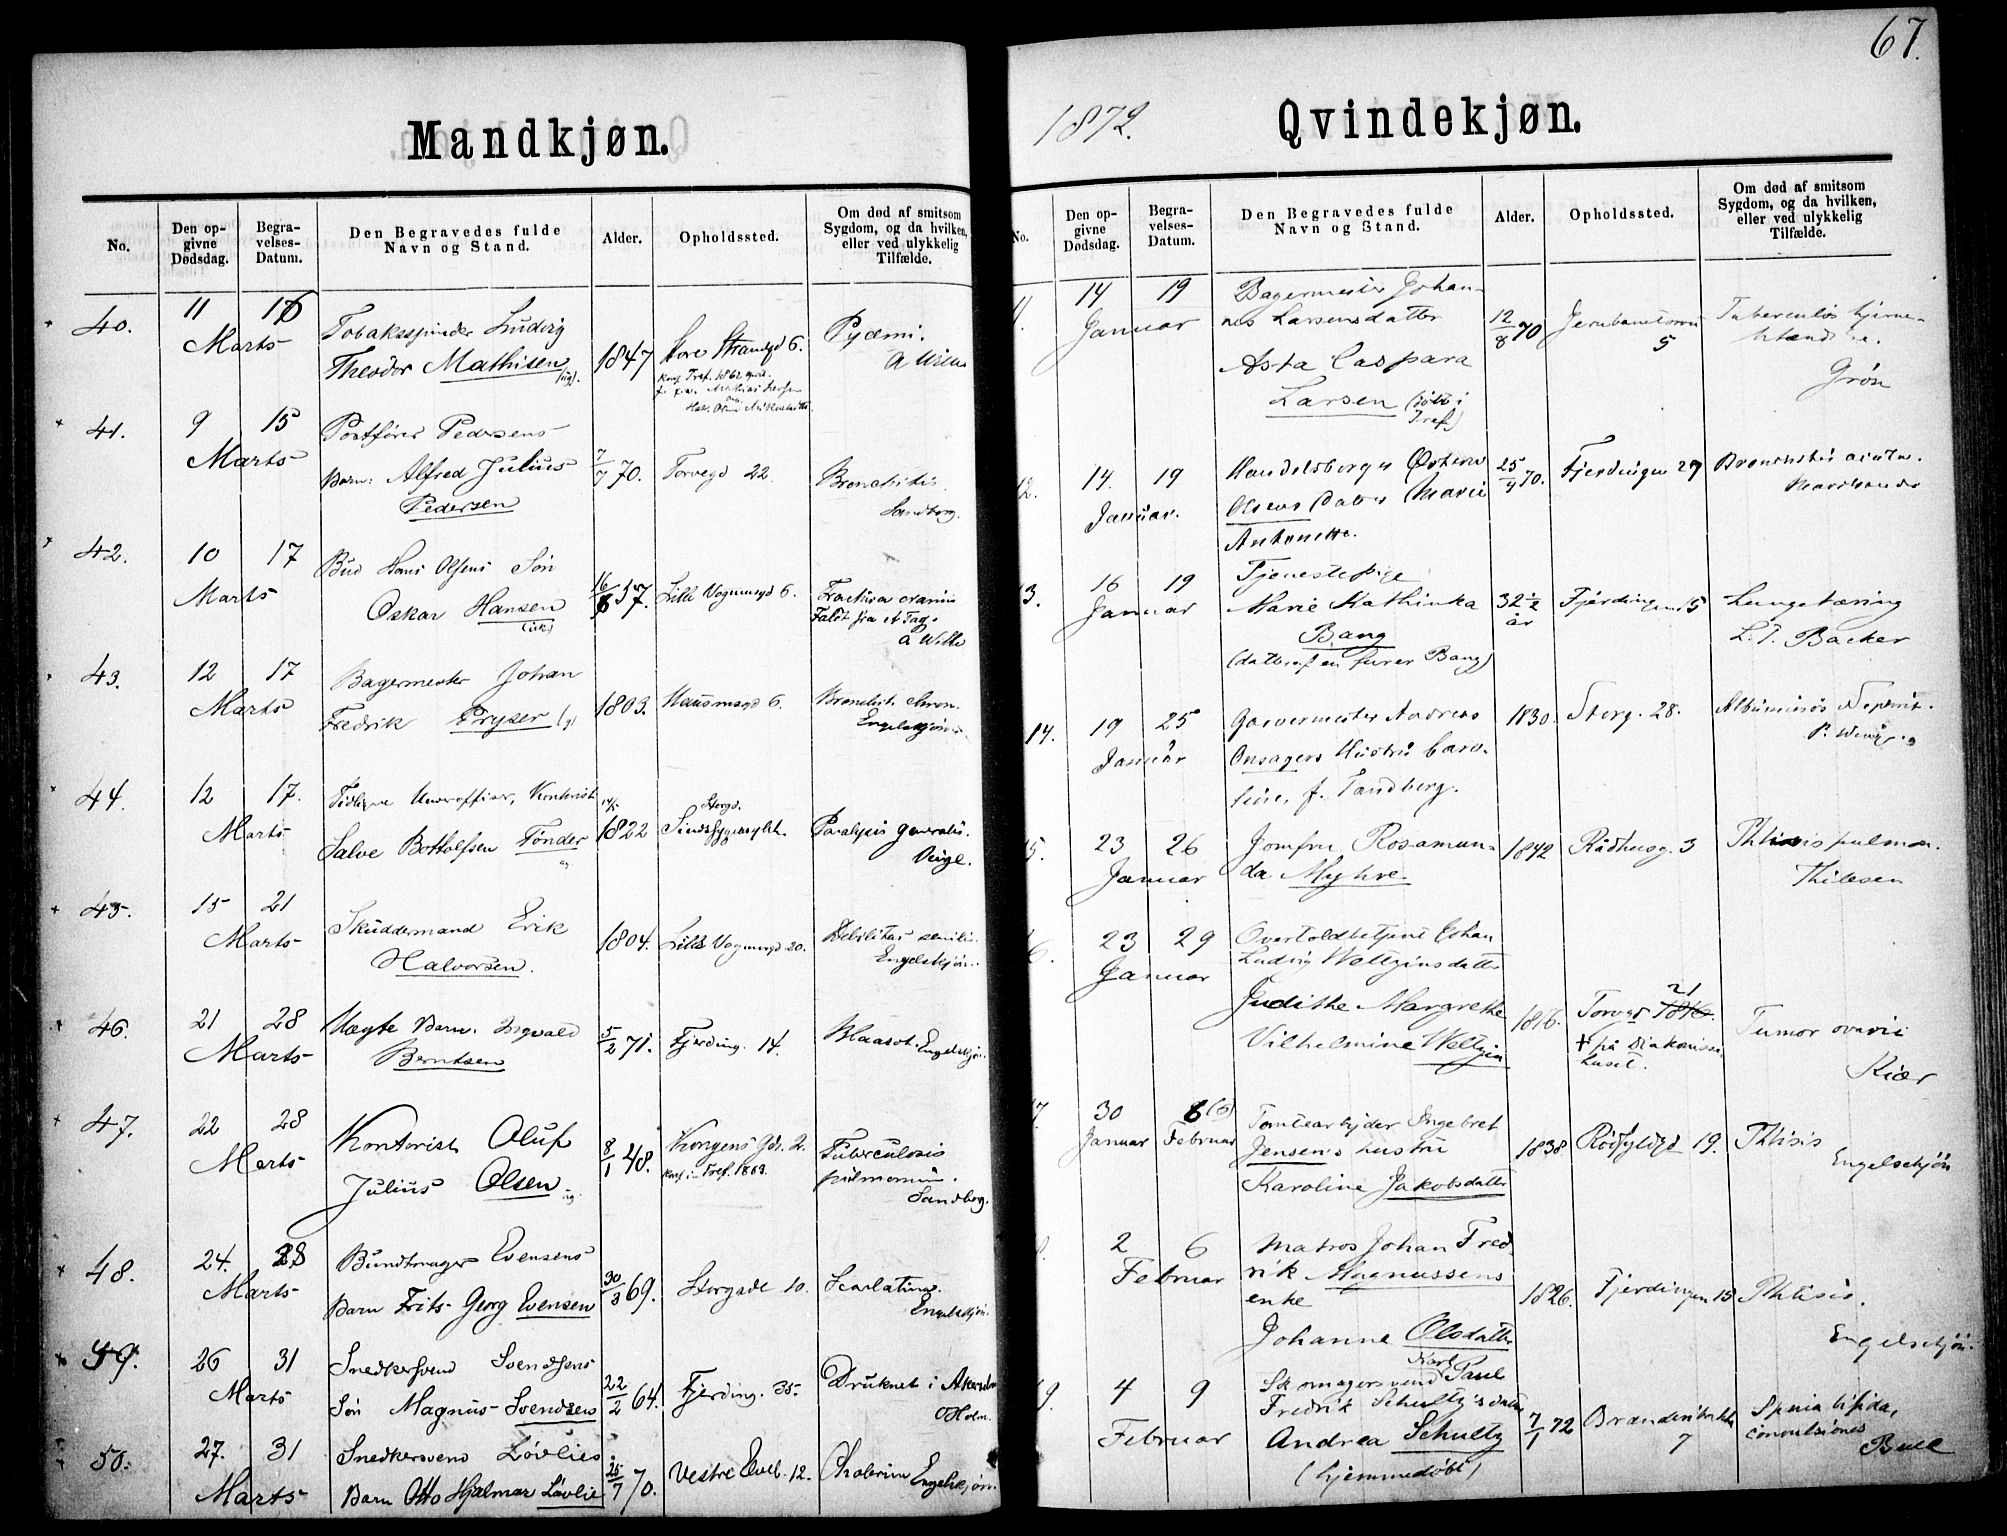 67.
Mandkjøn.
No.
Den op-
givne
Dødsdag.
Begra-
velses-
Datum.
Den Begravedes fulde
Navn og Stand.
Alder.
Opholdssted.
Om død af smitsom
Sygdom, og da hvilken,
eller ved ulykkelig
Tilfælde.
40.
11
16
Marts
Tobaksspinder Ludvig
Theodor Mathisen
1847
Store Strandgd 6.
Konf. Tref. 1862
Pyæmi.
41.
9
15
Marts
Postfører Pedersens
Barn: Alfred Julius
Pedersen
7/7 70.
Torvegd 22.
Bronchitis.
Sandberg.
42.
10
17
Marts
Bud Hans Olsens Søn
Oskar Hansen
37.
Lille Vognmgd 6.
Fractura cranii
Faldt fra et Tag.
43.
12
17
Marts
Bagermester Johan
Fredrik Pryser
1803.
Hausmsgd 6.
Bronchit. chron.
Engelskjøn
44.
12
17.
Marts
Tidligere Underofficer, Kontorist
Salve Bottolfsen Tønder
1822
Storgd.
Sindssygeasylet.
Paralysis generalis.
45.
15
21
Marts
Skuddermand Erik
Halvorsen.
1804.
Lille Vognmgd 20.
Debilitas senilis.
Engelskjøn.
46.
21
28
Marts
Uægte Barn: Ingvald
Berntsen
5/2 71.
Fjerding. 14.
Engelskjøn.
47.
22
28
Marts
Kontorist Oluf
Julius Olsen
8/1 48.
Kongens Gd. 2.
Konf. i Tref. 1863.
Tuberculosis
pulmonum.
Sandberg.
48.
24.
28
Marts
Bundtmager Evensens
Barn Frits Georg Evensen
30/3 69.
Storgade 10.
Scarlatina.
Engelskjøn.
49.
26
31
Marts
Snedkersvend Svendsens
Søn Magnus Svendsen
22/2 64.
Fjerding. 35.
Druknet i Akerselv
Holm.
50.
27.
31
Marts
Snedkersvend Løvlies
Barn Otto Hjalmar Løvlie
25/7 70.
Vestre Elveb. 12.
Cholerine
Engelskjøn.
1872.
Qvindekjøn.
No.
Den op-
givne
Dødsdag.
Begra-
velses-
Datum.
Den Begravedes fulde
Navn og Stand.
Alder.
Opholdssted.
Om død af smitsom
Sygdom, og da hvilken,
eller ved ulykkelig
Tilfælde.
14
19
Januar
Bagermester Johan-
nes Larsens datter
Asta Caspara
Larsen (døbt i
Tref.)
12/8 70
Jernbanetorvet
5
Tuberculøs hjerne-
Grøn
2.
14.
19
Januar.
Handelsborger
Olsens Datter Marie
Antonette.
25/9 70.
Fjerdingen 27
Bronchitis acuta.
3.
16
19
Januar
Tjenestepige
Marie Kathinka
Bang
(datter af en furer Bang)
32 1/2
år
Fjerdingen 15
Lungetæring
L. T. Backer
14.
19
25
Januar
Garvermester Andreas
Onsagers Hustru Caro-
line, f. Tandberg.
1830.
Storg. 28.
Albuminøs Nephrit.
5.
23
26
Januar
Jomfru Rosamun-
da Myhre.
1842
Rådhusg. 3
Phthisis pulmon.
Thilesen
6.
23
29
Januar
Overtoldbetjent Johan
Ludvig Weltzins datter
Judithe Margrethe
Vilhelmine Weltzin
1816.
21
Torvgd 1816.
+ på Diakonisse
huset.
Tumor ovarii
Kiær
7.
30
6 (5)
Januar
Februar
Tomtearbejder Ingebret
Jensens hustru
Karoline Jakobsdatter
1838.
Rødfyldgd 19.
Phtisis
Engelschjøn
2
6
Februar
Matros Johan Fred-
rik Magnussens
enke
Johanne Olsdatter
1826.
Fjerdingen 15
Phtisis.
Engelschjøn.
9.
4
9
Februar
Karl
Skomagersvend Paul
Fredrik Schultz's datter
Andrea Schultz
(hjemmedøbt)
7/1 72
7
Spina bifida,
convulsiones
Bull